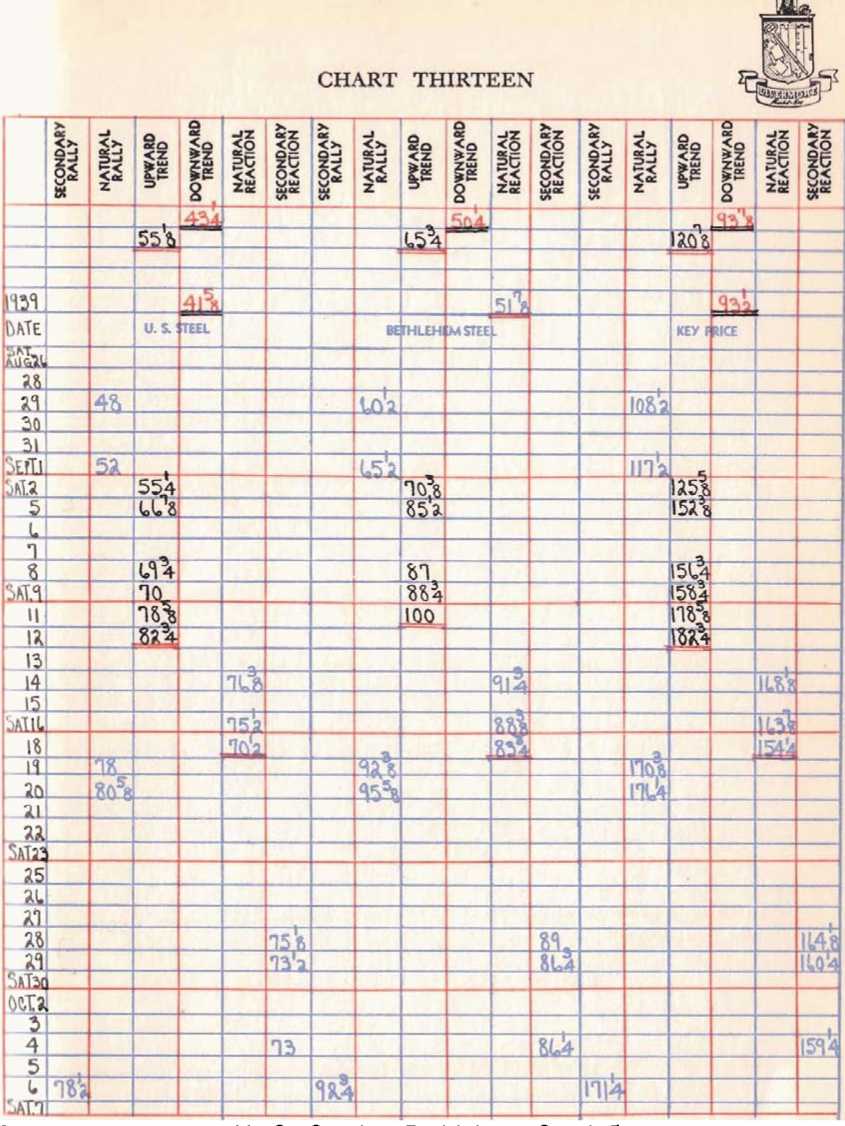 LIVERMORE
CHART THIRTEEN
SECONDARY RALLY NATURAL RALLY UPWARD TREND DOWNWARD TREND NATURAL REACTION SECONDARY REACTION SECONDARY RALLY NATURAL RALLY UPWARD TREND DOWNWARD TREND NATURAL REACTION SECONDARY REACTION SECONDARY RALLY NATURAL RALLY UPWARD TREND DOWNWARD TREND NATURAL REACTION SECONDARY REACTION
43¼ 50¼ 93⅞
55⅛ 65¾ 120⅞
1939 41⅝ 51⅞ 93½
DATE U. S. STEEL BETHLEHEM STEEL KEY PRICE
SAT. AUG26
28
29 48 60½ 108½
30
31
SEPT1 52 65½ 117½
SAT.2 55¼ 70⅜ 125⅝
5 66⅞ 85½ 152⅜
6
7
8 69¾ 87 156¾
SAT.9 70 88¾ 158¾
11 78⅝ 100 178⅝
12 82¾ 182¾
13
14 76⅜ 91¾ 168⅛
15
SAT16 75½ 88⅜ 163⅞
18 70½ 83¾ 154¼
19 78 92⅜ 170⅜
20 80⅝ 95⅝ 176¼
21
22
SAT23
25
26
27
28 75⅛ 89 164⅛
29 73½ 86¾ 160¼
SAT30
OCT.2
3
4 73 86¼ 159¼
5
6 78½ 92¾ 171¼
SAT.7